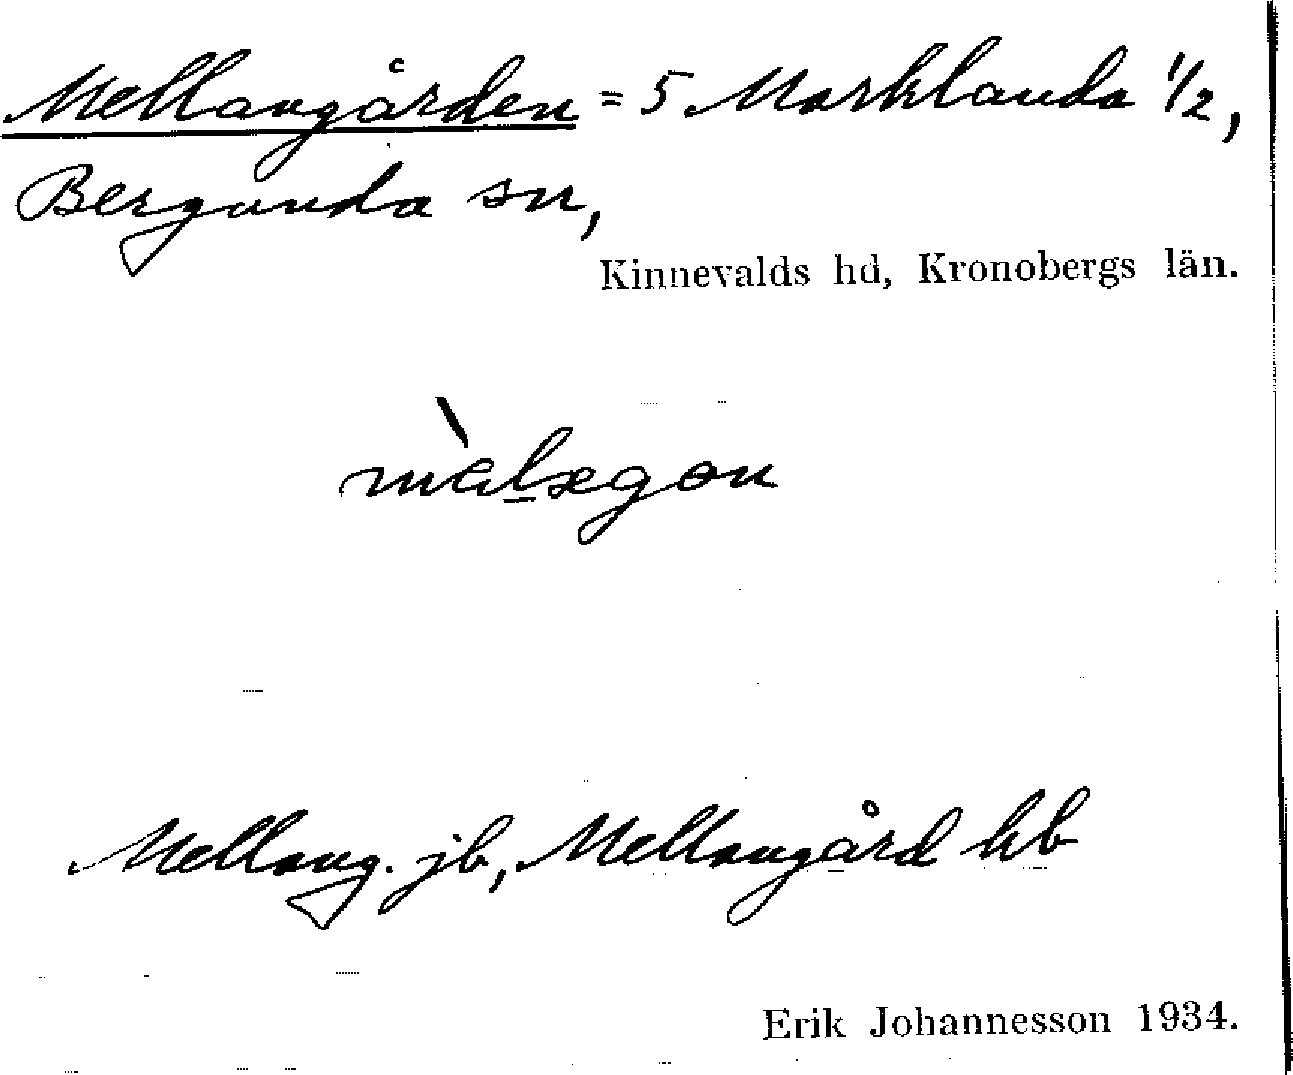 Mellangården = 5 Marklanda 1/2,
Bergunda sn,
Kinnevalds hd, Kronobergs län.
Mellang. jb, Mellangård hb
Erik Johannesson 1934.